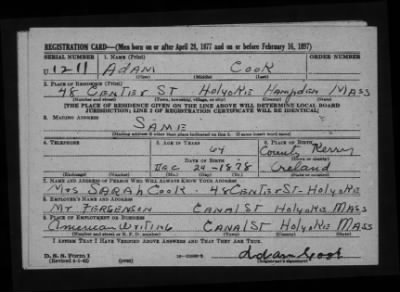 REGISTRATION CARD—(Men born on or after April 28, 1877 and on or before February 16, 1897)
SERIAL NUMBER 1. NAME (Print) ORDER NUMBER
U 1211 ADAM COOK
(First) (Middle) (Last)
2. PLACE OF RESIDENCE (Print)
48 CENTER ST HOLYOKE HAMPDEN MASS
(Number and street) (Town, township, village, or city) (County) (State)
[THE PLACE OF RESIDENCE GIVEN ON THE LINE ABOVE WILL DETERMINE LOCAL BOARD
JURISDICTION; LINE 2 OF REGISTRATION CERTIFICATE WILL BE IDENTICAL]
3. MAILING ADDRESS
SAME
[Mailing address if other than place indicated on line 2. If same insert word same]
4. TELEPHONE 5. AGE IN YEARS 6. PLACE OF BIRTH
64 County Kerry
DATE OF BIRTH (Town or county)
DEC 24 - 1878 Ireland
(Exchange) (Number) (Mo.) (Day) (Yr.) (State or country)
7. NAME AND ADDRESS OF PERSON WHO WILL ALWAYS KNOW YOUR ADDRESS
MRS SARAH COOK - 48 CENTER ST - HOLYOKE
8. EMPLOYER'S NAME AND ADDRESS
MR FERGENSON CANAL ST HOLYOKE MASS
9. PLACE OF EMPLOYMENT OR BUSINESS
AMERICAN WRITING CANAL ST HOLYOKE MASS
(Number and street or R. F. D. number) (Town) (County) (State)
I AFFIRM THAT I HAVE VERIFIED ABOVE ANSWERS AND THAT THEY ARE TRUE.
D. S. S. Form 1
(Revised 4-1-42) (over) Adam Cook
(Registrant's signature)